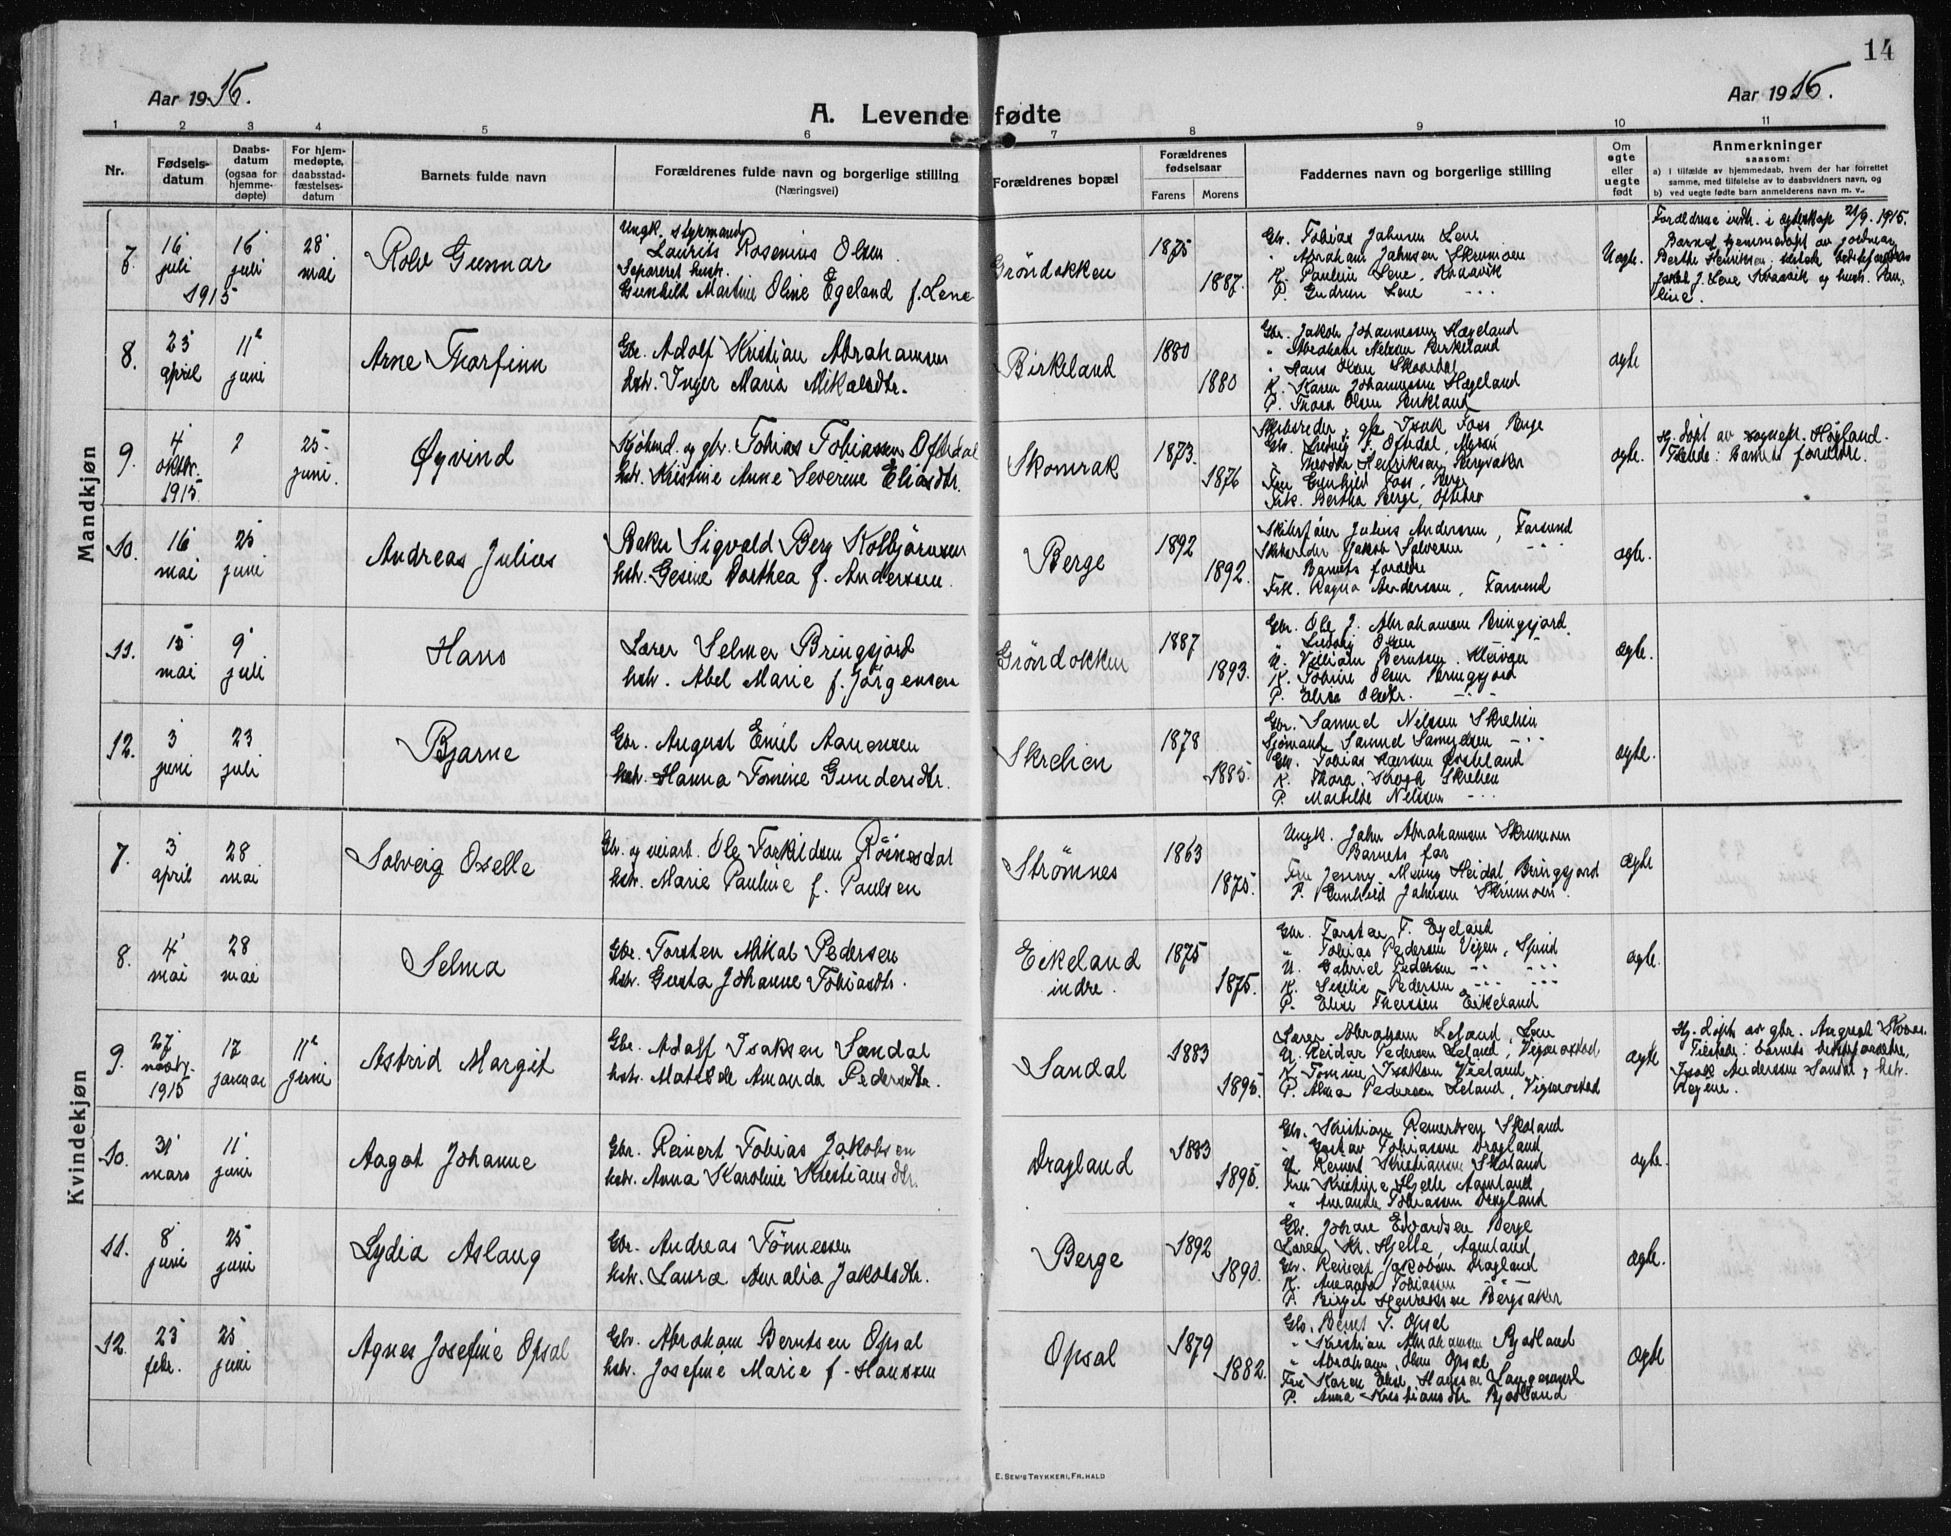 14
Aar 1916.
A. Levende fødte
Aar 1916.
1 2 3 4 5 6 7 8 9 10 11
Nr.
Fødsels-
datum
Daabs-
datum
(ogsaa for
hjemme-
døpte)
For hjem-
medøpte,
daabsstad-
fæstelses-
datum
Barnets fulde navn
Forældrenes fulde navn og borgerlige stilling
(Næringsvei)
Forældrenes bopæl
Forældrenes
fødselsaar
Farens Morens
Faddernes navn og borgerlige stilling
Om
egte
eller
uegte
født
Anmerkninger
saasom:
a) i tilfælde av hjemmedaab, hvem der har forrettet
samme, med tilføielse av to daabsvidners navn, og
b) ved uegte fødte barn anmelderens navn m. v.
Mandkjøn
7.
16 juli 1915
16 juli
28 mai
Rolv Gunnar
Ungk. styrmand
Laurits Rosenius Olsen
Separeret hustr.
Gunhild Martine Oline Egeland f. Lene
Gröndokken
1875
1887.
Gbr. Tobias Jahnsen Lene
" Abraham Jahnsen Skrumoen
K. Pauline Lene, Kvaavik
P. Gudrun Lene - - -
Uegte.
Forældrene indtr. i ægteskap 21/9. 1915.
Barnet hjemmedøpt av jordmor
Berthe Henriksen;
J. Lene Kvaavik og hustr. Pau-
line.
8.
23 april
11 juni
Arne Thorfinn
Gbr. Adolf Kristian Abrahamsen
hstr. Inger Maria Mikalsdtr.
Birkeland
1880
1880
Gbr. Jakob Johannessen Hægeland
" Abraham Nelsen Birkeland
" Hans
K. Karen Johannessen Hægeland
P. Thora Olsen Birkland
ægte
9.
4 oktbr. 1915
?
25 juni.
Øyvind
Kjöbmd. og gbr. Tobias Tobiassen Oftedal
hstr. Kristine Anne Severine Eliasdtr.
Skomrak
1873.
1876
Skibsreder, gbr. Isak Foss Berge
Gbr. Ludvig T. Oftedal,
Henriksen Bergsaker
Fru Gunhild Foss, Berge
Frk. Bertha Berge, Oftebro
ægte.
Hj. døpt av sognepr. Høyland.
Tilstede: Barnets foreldre.
10.
16 mai
25 juni
Andreas Julius
Baker Sigvald Berg Kolbjörnsen
hstr. Gesine Dorthea f. Anderssen.
Berge
1892
1892.
Skibsförer Julius Anderssen, Farsund
Skibsreder Jakob Salvesen - - -
Barnets forældre
Frk. Ragna Anderssen, Farsund
ægte.
11.
15 mai
9 juli
Hans
Lærer Selmer Bringsjord
hstr. Abel Marie f. Jörgensen
Gröndokken
1887
1893.
Gbr. Ole J. Abrahamsen Bringsjord.
" Ludvig Olsen - - -
U. Villiam Berntsen. Kleivan
K. Tobine Olsen Bringsjord
P. Elisa Olsdtr. - - -
ægte.
12.
3 juni
23 juli
Bjarne
Gbr. August Emil Aanensen
hstr. Hanna Tomine Gundersdtr.
Skrelien
1878
1885.
Gbr. Samuel Nelssen Skrelien
Sjömand Samuel Samuelsen - - -
Gbr. Tobias Larsen
K. Thora Skrelien
P. Mathilde Nelssen - - -
ægte.
Kvindekjøn
7.
3 april
28 mai
Solveig Oselle
Gbr. og veiarb. Ole Torkildsen Röinesdal
hstr. Marie Pauline f. Paulsen
Strömnes
1863
1875.
Ungk. Jahn Abrahamsen Skrumoen
Barnets far
Fru Jenny Meung Heidal Bringsjord
P. Gunhild Jahnsen Skrumoen.
Ægte
8.
4 mai
28 mai
Selma
Gbr. Torsten Mikal Pedersen
hstr. Gusta Johanne Tobiasdtr.
Eikeland
indre.
1875
1875.
Gbr. Torsten T. Egeland
" Tobias Pedersen Vigen, Spind
U. Gabriel Pedersen - - -
K. Sesilie Pedersen - - -
P. Elise Thorssen Eikeland
ægte.
9.
27 novbr. 1915
17 januar
11 juni
Astrid Margit
Gbr. Adolf Isaksen Sandal
hstr. Matilde Amanda Pedersdtr.
Sandal
1883
1895.
Lærer Abraham Leland, Lene
U. Reidar Pedersen Leland, Vigmostad
K. Tomine Isaksen Vieland
P. Alma Pedersen Leland, Vigmostad
ægte
Hj. døpt av gbr. August
Tilstede: barnets besteforældre,
Isak Anderssen Sandal, hstr.
Regine.
10.
31 mars
11 juni
Aagot Johanne
Gbr. Reinert Tobias Jakobsen
hstr. Anna Karoline Kristiansdtr.
Dragland
1883
1895.
Gbr. Kristian Reinertsen Skoland
" Gustav Tobiassen Dragland
U. Reinert Kristiansen Skoland
Fru Kristine Hjelle Aamland
" Amanda Tobiassen Dragland
ægte.
11.
8 juni
25 juni
Lydia Aslaug
Gbr. Andreas Tönnessen
hstr. Laura Amalia Jakobsdtr.
Berge
1892
1890.
Gbr. Johan Edvardsen Berge
Lærer Kr. Hjelle, Aamland
Gbr. Reinert Jakobsen Dragland
K. Amanda Tobiassen - - -
P. Birgit Henriksen Bergsaker
ægte.
12.
23 febr.
25 juni
Agnes Josefine Opsal
Gbr. Abraham Berntsen Opsal
hstr. Josefine Marie f. Hanssen
Opsal
1879
1882.
Gbr. Bernt T. Opsal
" Kristian Abrahamsen Rjosland
" Abraham Olsen Opsal
Fru Karen Elise Hanssen Langesund
P. Anna Kristiansdtr. Rjosland
ægte
E. SEM'S TRYKKERI, FR.HALD